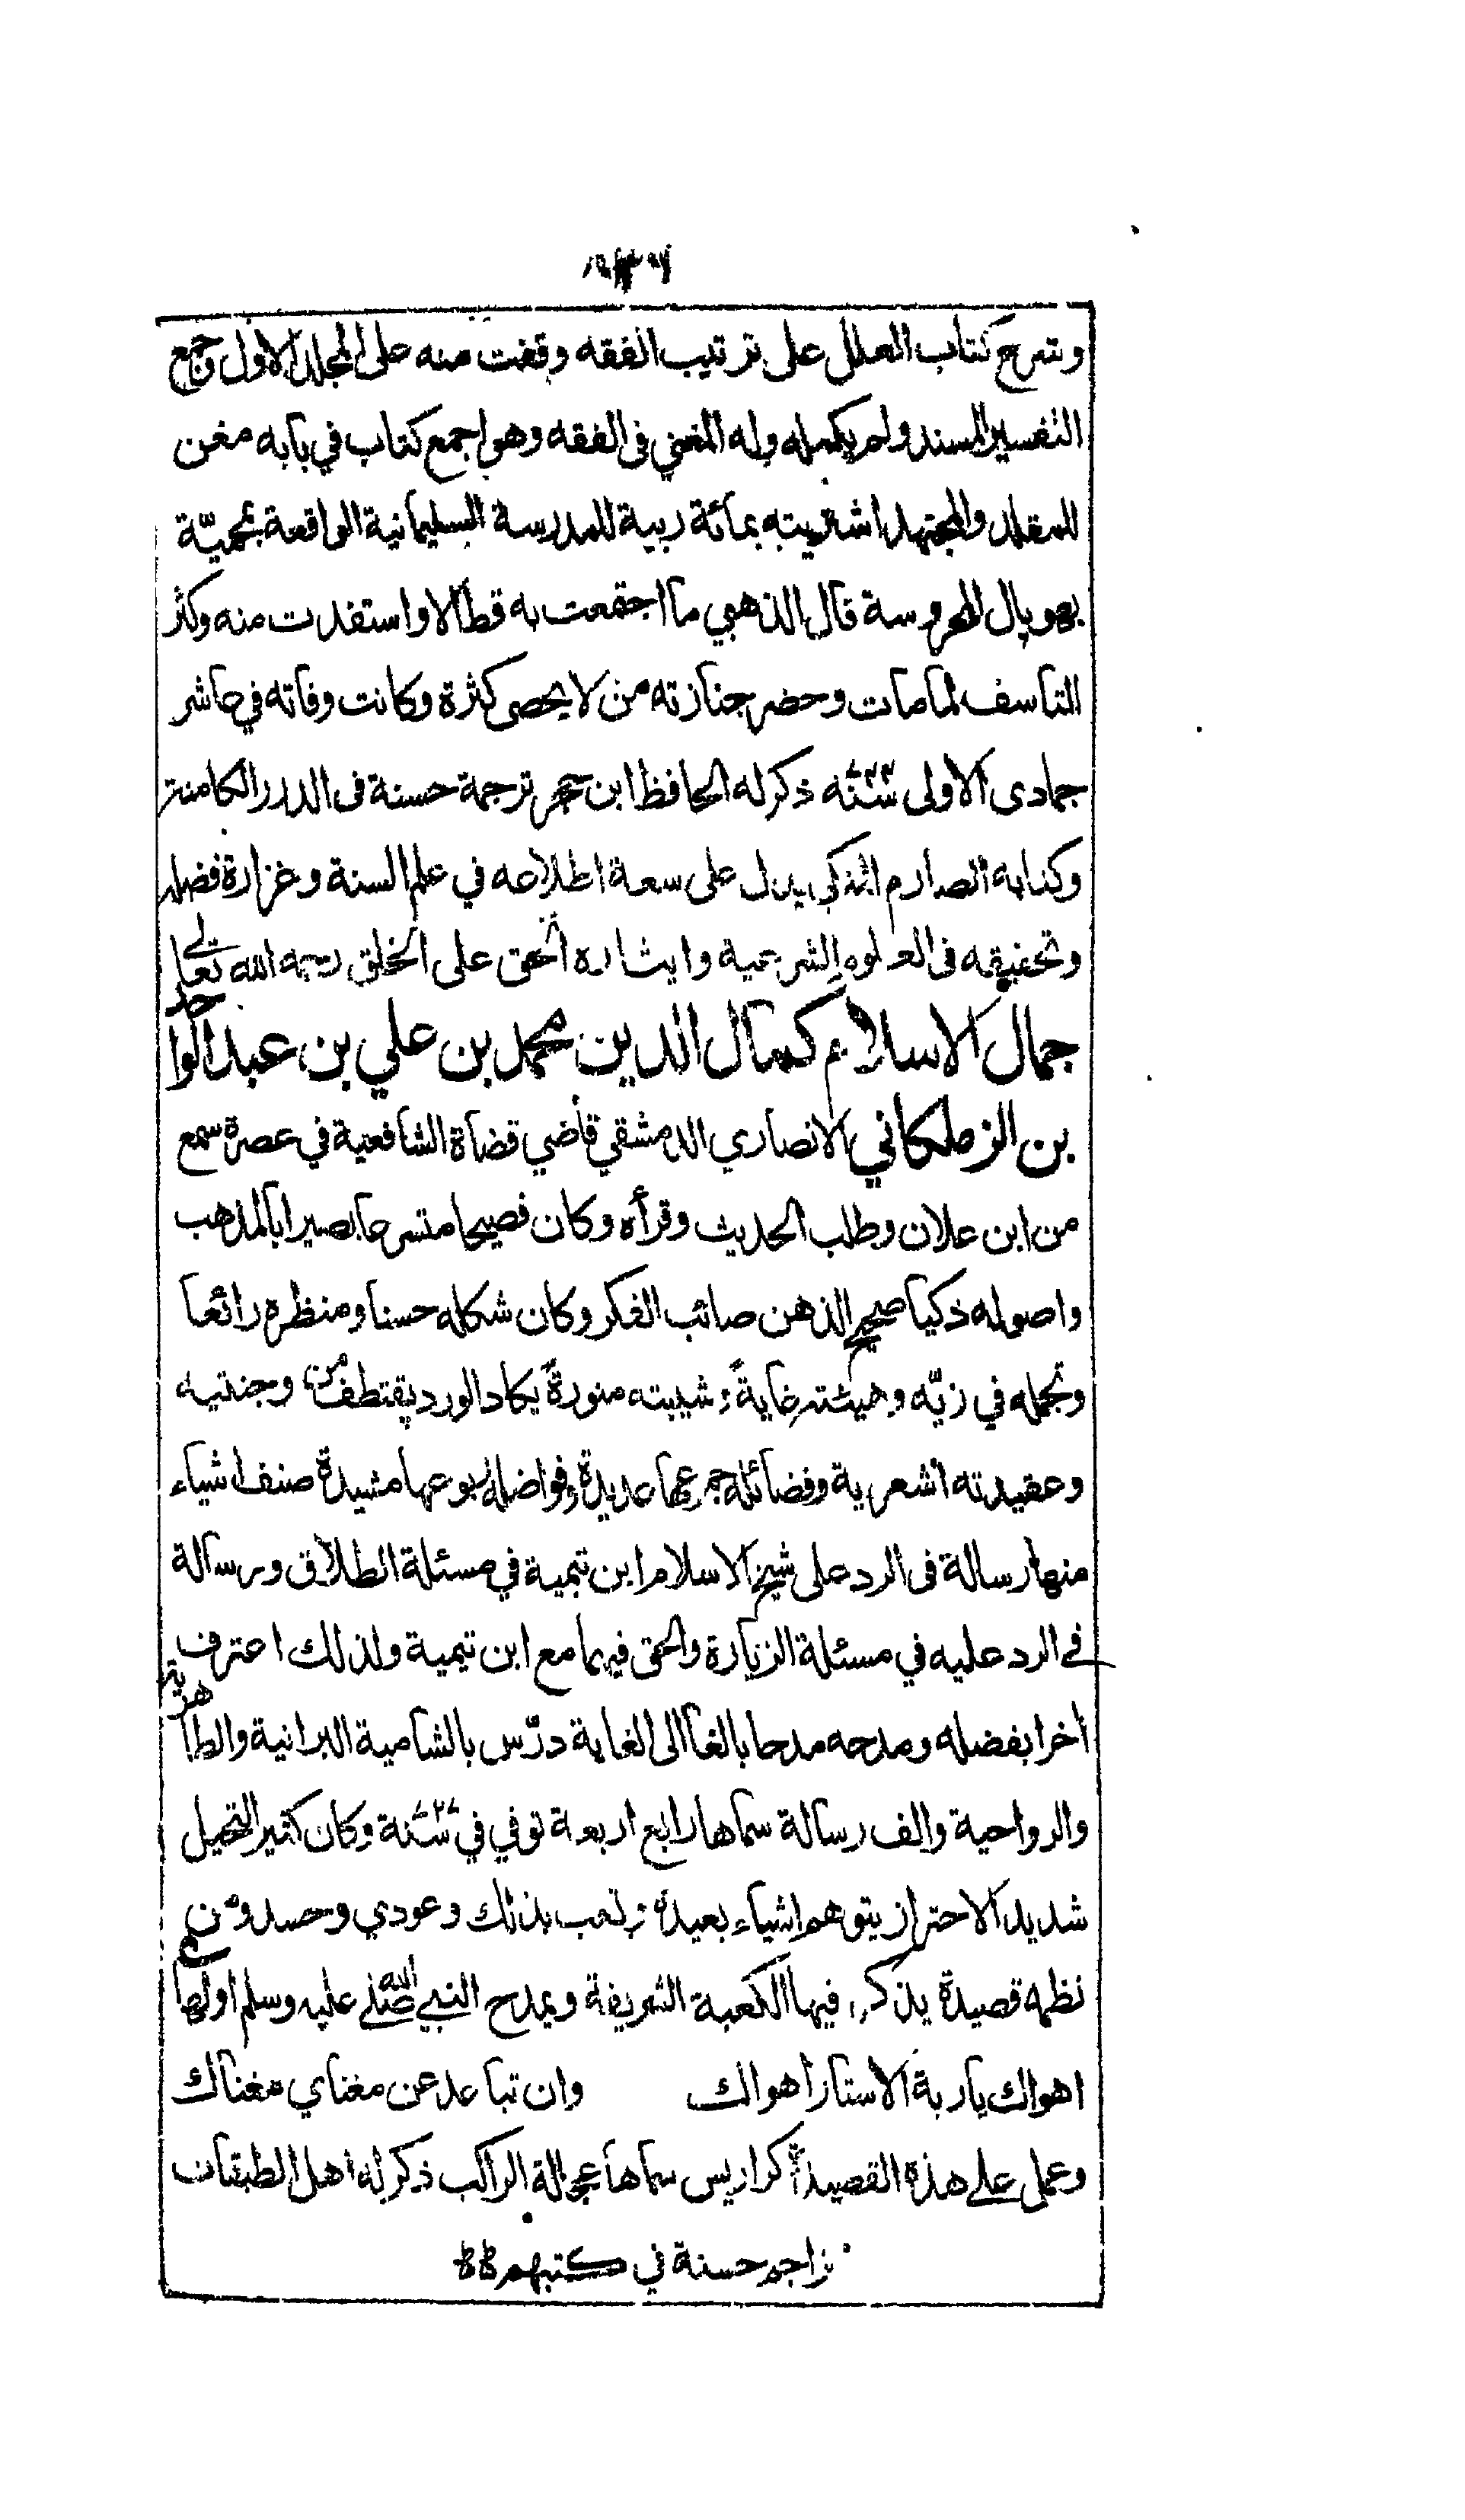 وشرح كتاب العلل على ترتيب الفقه وقفت منه على المجلد الاول وجمع
التفسير المسند ولم يكمله وله المغني فى الفقه وهو اجمع كتاب في بابه مغن
للمقلد والمجتهد اشتريته بمائة ربية للمدرسة السليمانية الواقعة بمحميّة
بهوپال المحروسة قال الذهبي ما اجتمعت به قط الا واستفدت منه وكثر
التاسف لما مات وحضر جنازته من لا يحصى كثرة وكانت وفاته في عاشر
جمادى الاولى سنة ذكر له الحافظ ابن حجر ترجمة حسنة فى الدرر الكامنة
وكتابه الصارم المنكي يدل على سعة اطلاعه في علم السنة وغزارة فضله
وتحقيقه فى العلوم الشرعية وايثاره الحق على الخلق رحمه الله تعالى
جمال الاسلام كمال الدين محمد بن علي بن عبد الواحد
بن الزملكاني الانصاري الدمشقي قاضي قضاة الشافعية في عصره سمع
من ابن علان وطلب الحديث وقرأه وكان فصيحا متسرعا بصيرا بالمذهب
واصوله ذكيا صحيح الذهن صائب الفكر وكان شكله حسنا ومنظره رائعا
وتجمله في زيّه وهيئته غاية وشيبته منورة يكاد الورد يقتطف من وجنتيه
وعقيدته اشعرية وفضائله جموعها عديدة وفواضله ربوعها مشيدة صنف اشياء
منها رسالة فى الرد على شيخ الاسلام ابن تيمية في مسئلة الطلاق ورسالة
في الرد عليه في مسئلة الزيارة والحق فيهما مع ابن تيمية ولذلك اعترف
أخرا بفضله ومدحه مدحا بالغا الى الغاية درّس بالشامية البرانية والظاهرية
والرواحية والف رسالة سماها رابع اربعة توفي في سنة ٧٢٧ وكان كثير التخيل
شديد الاحتراز يتوهم اشياء بعيدة وتعب بذلك وعودي وحسد ومن
نظمه قصيدة يذكر فيها الكعبة الشريفة ويمدح النبي صلى الله عليه وسلم اولها
اهواك ياربة الاستار اهواك وان تباعد عن مغناي مغناك
وعمل على هذه القصيدة كراريس سماها عجالة الراكب ذكر له اهل الطبقات
تراجم حسنة في كتبهم